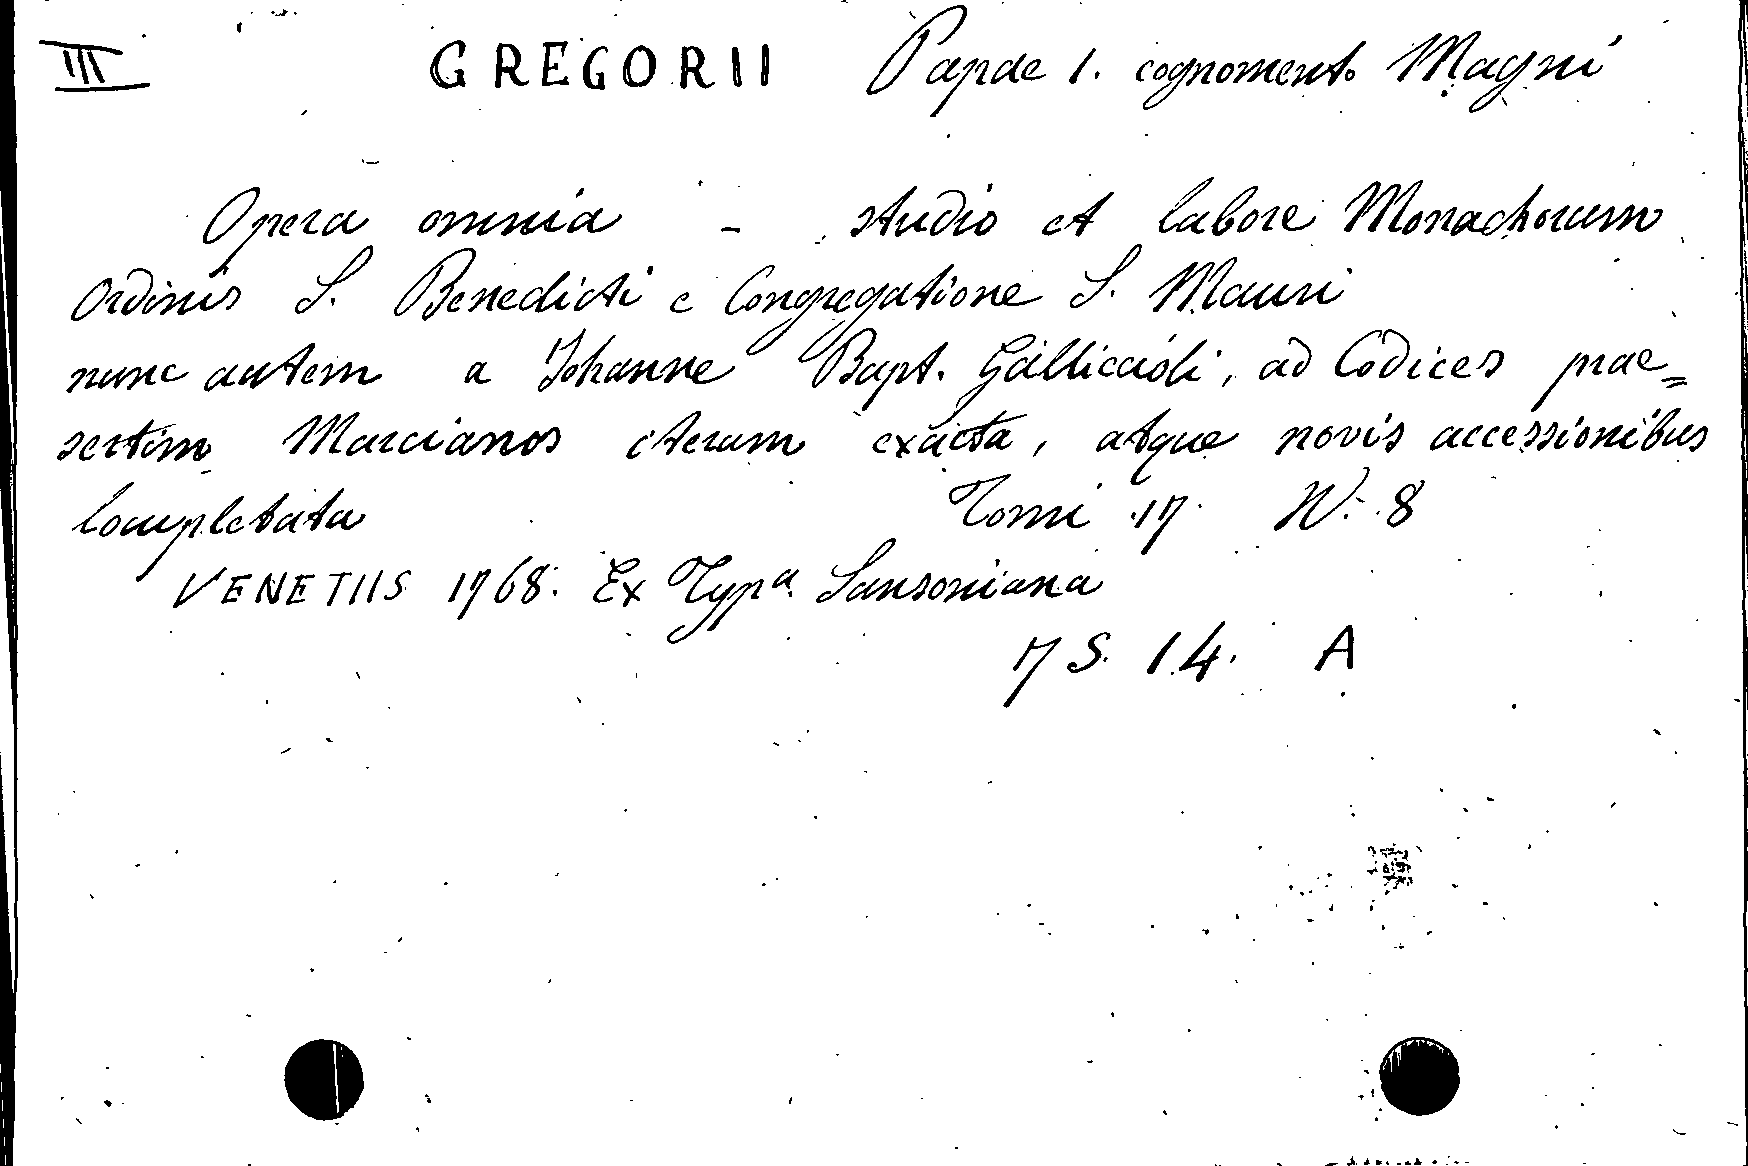 III GREGORII Papae 1. cognomento Magni
Opera omnia - studio et labore Monachorum
Ordinis S. Benedicti e Congregatione S. Mauri
nunc autem a Johanne Bapt. Galliccioli, ad Codices prae=
sertim Marcianos iterum exacta, atque novis accessionibus
Completata Tomi 17 N. 8
VENETIIS 1768. Ex Typa. Sansoniana
7 S. 14. A